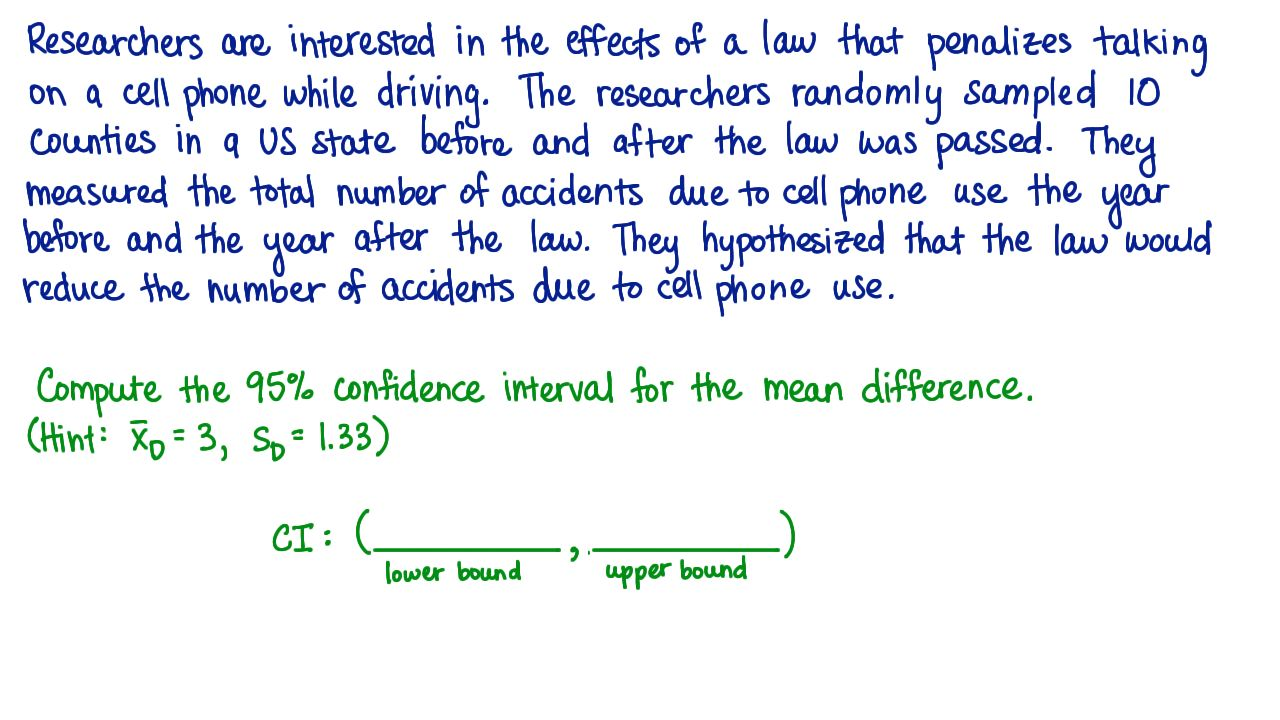 Researchers are interested in the effects of a law that penalizes talking
on a cell phone while driving. The researchers randomly sampled 10
counties in a US state before and after the law was passed. They
measured the total number of accidents due to cell phone use the year
before and the year after the law. They hypothesized that the law would
reduce the number of accidents due to cell phone use.
Compute the 95% confidence interval for the mean difference.
(Hint: x̄_D = 3, S_D = 1.33)
CI: (____________, ____________)
lower bound upper bound